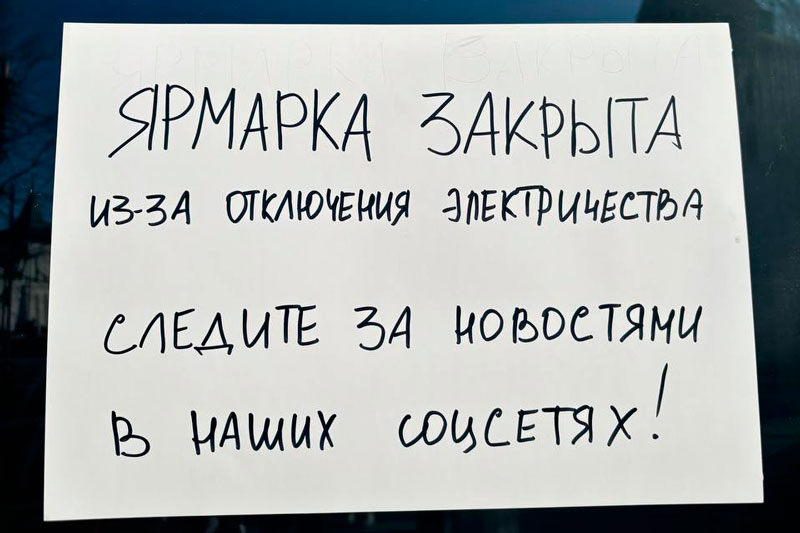 ЯРМАРКА ЗАКРЫТА
ИЗ-ЗА ОТКЛЮЧЕНИЯ ЭЛЕКТРИЧЕСТВА
СЛЕДИТЕ ЗА НОВОСТЯМИ
В НАШИХ СОЦСЕТЯХ!